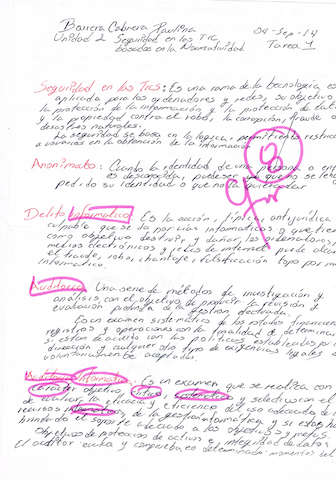 Barrera Cabrera Paulina 04-Sep-14
Unidad 2 Seguridad en las TIC Tarea 1
basados en la Normatividad
Seguridad en las Tics: Es una rama de la tecnologia es
aplicada para los ordenadores y redes, su objetivo
la protección de la información y la protección de dat
y la propiedad contra el robo, la corrupción, fraude o
desastres naturales.
La seguridad se basa en lo logica, permitiendo restr
a usuarios en la obtención de la información
Anonimato: Cuando la identidad de una persona o en
es desconocida, puede ser que se le
pedido su identidad o que no la quiera dar
Delito Informatico Es la acción, típica, antijuridica
culpable que se da por vías informaticas o que tien
como objetivo destruir y dañar los ordenadores,
medios electrónicos y redes de internet puede
el fraude, robo, chantaje, falsificación
informatica.
Auditoria Una serie de métodos de investigación y
análisis con el objetivo de producir la revisión y
evaluación profunda de la gestión efectuada.
Es un examen sistematico de los estados financier
registros y operaciones con la finalidad de determina
si estan de acuerdo con las politicas establecidas p
dirección y cualquier otro tipo de exigencias legales o
voluntariamente adaptadas.
Auditoria Informatica: Es un examen que se realiza con
caracter objetivo, critico, sistematico y selectivo con el
de evaluar la eficacia y eficiencia del uso adecuado de
recursos informaticos, de la gestión informática y si estas ha
brindado el soporte adecuado a los objetivos y metas.
Objetivos de protección de activos e integridad de datos
El auditor evalua y comprueba en determinados momentos del